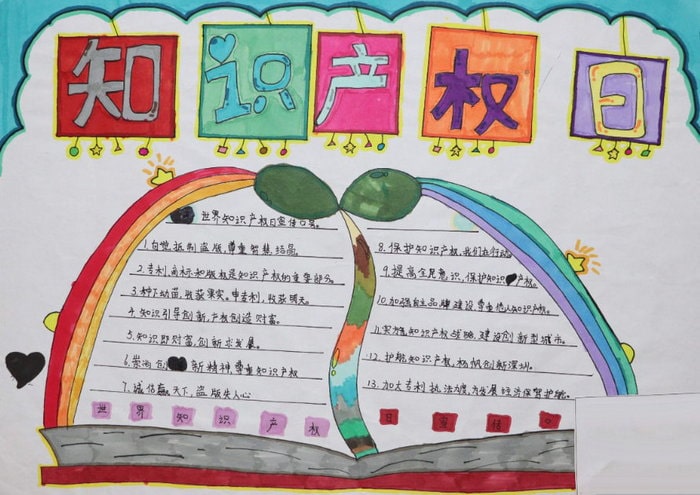 知识产权日
世界知识产权日宣传口号。
1.自觉抵制盗版,尊重智慧结晶。
2.专利商标和版权是知识产权的重要部分。
3.种下幼苗,收获果实。申专利,收获明天。
4.知识引导创新,产权创造财富。
5.知识即财富,创新求发展。
6.崇尚创新精神,尊重知识产权
7.诚信赢天下,盗版失人心
8.保护知识产权,我们在行动
9.提高全民意识,保护知识产权。
10.加强自主品牌建设,尊重他人知识产权。
11.实施知识产权战略,建设创新型城市。
12.护航知识产权,杨帆创新深圳。
13.加大专利执法力度,为发展经济保驾护航。
世界知识产权
日宣传口